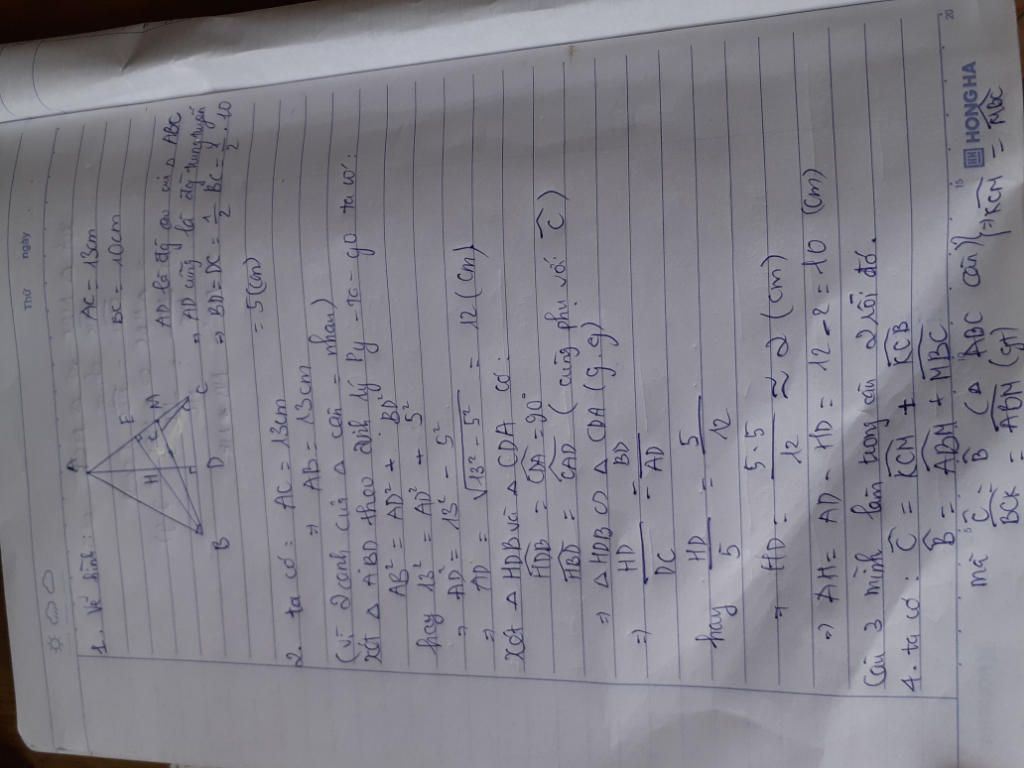 Thứ ngày
1. Vẽ hình:
A
E
M
H
B D C
AC = 13cm
BC = 10cm
AD là đg cao của △ ABC
⇒ AD cũng là đg trung tuyến
⇒ BD = DC = 1/2 BC = 1/2 . 10
= 5 (cm)
2. ta có: AC = 13cm
⇒ AB = 13cm
(vì 2 cạnh của △ cân = nhau)
Xét △ ABD theo định lý Py-ta-go ta có:
AB² = AD² + BD²
hay 13² = AD² + 5²
⇒ AD² = 13² - 5²
⇒ AD = √13² - 5² = 12 (cm)
Xét △ HDB và △ CDA có:
HDB = CDA = 90°
HBD = CAD (cùng phụ với C)
⇒ △ HDB ∽ △ CDA (g.g)
⇒ HD/DC = BD/AD
hay HD/5 = 5/12
⇒ HD = 5.5/12 ≈ 2 (cm)
⇒ AH = AD - HD = 12 - 2 = 10 (cm)
Câu 3 mình làm trong câu 2 rồi đó.
4. ta có: C = KCM + KCB
B = ABM + MBC
mà C = B (△ ABC cân) ⇒ KCM = MBC
BCK = ABM (gt)
HONG HA
15
20